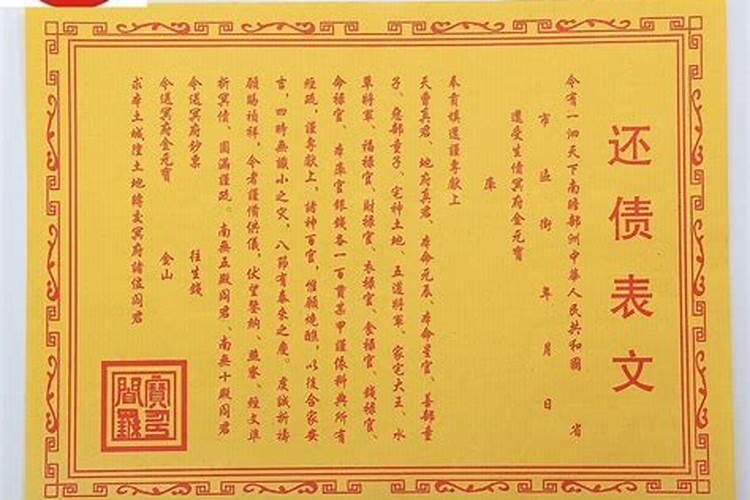 还债表文
今有一泗天下南瞻部洲中華人民共和國 省
市 區 街 年 月 日
還受生債冥府金元寶
庫
奉育填還謹專獻上
天曹真君、地府真君、本命元辰、本命星官、善部童
子、惡部童子、宅神土地、五道將軍、家宅大王、水
草將軍、福祿官、財祿官、衣祿官、食祿官、錢祿官、
命祿官、本庫官銀錢各一百貫某甲謹依科典所有
經疏，謹專獻上，諸神百官，惟願燒醮，以後合家安
言，四時無讖小之灾，八節有泰來之慶。虔誠祈禱
願賜禎祥，令者謹備供儀，伏望鑒納、照察、經文準
折冥債、圓滿謹疏。南無五殿閻君、南無十殿閻君
令送冥府鈔票 往生錢
令送冥府金元寶 金山
求本土城隍土地轉交冥府諸位閻君